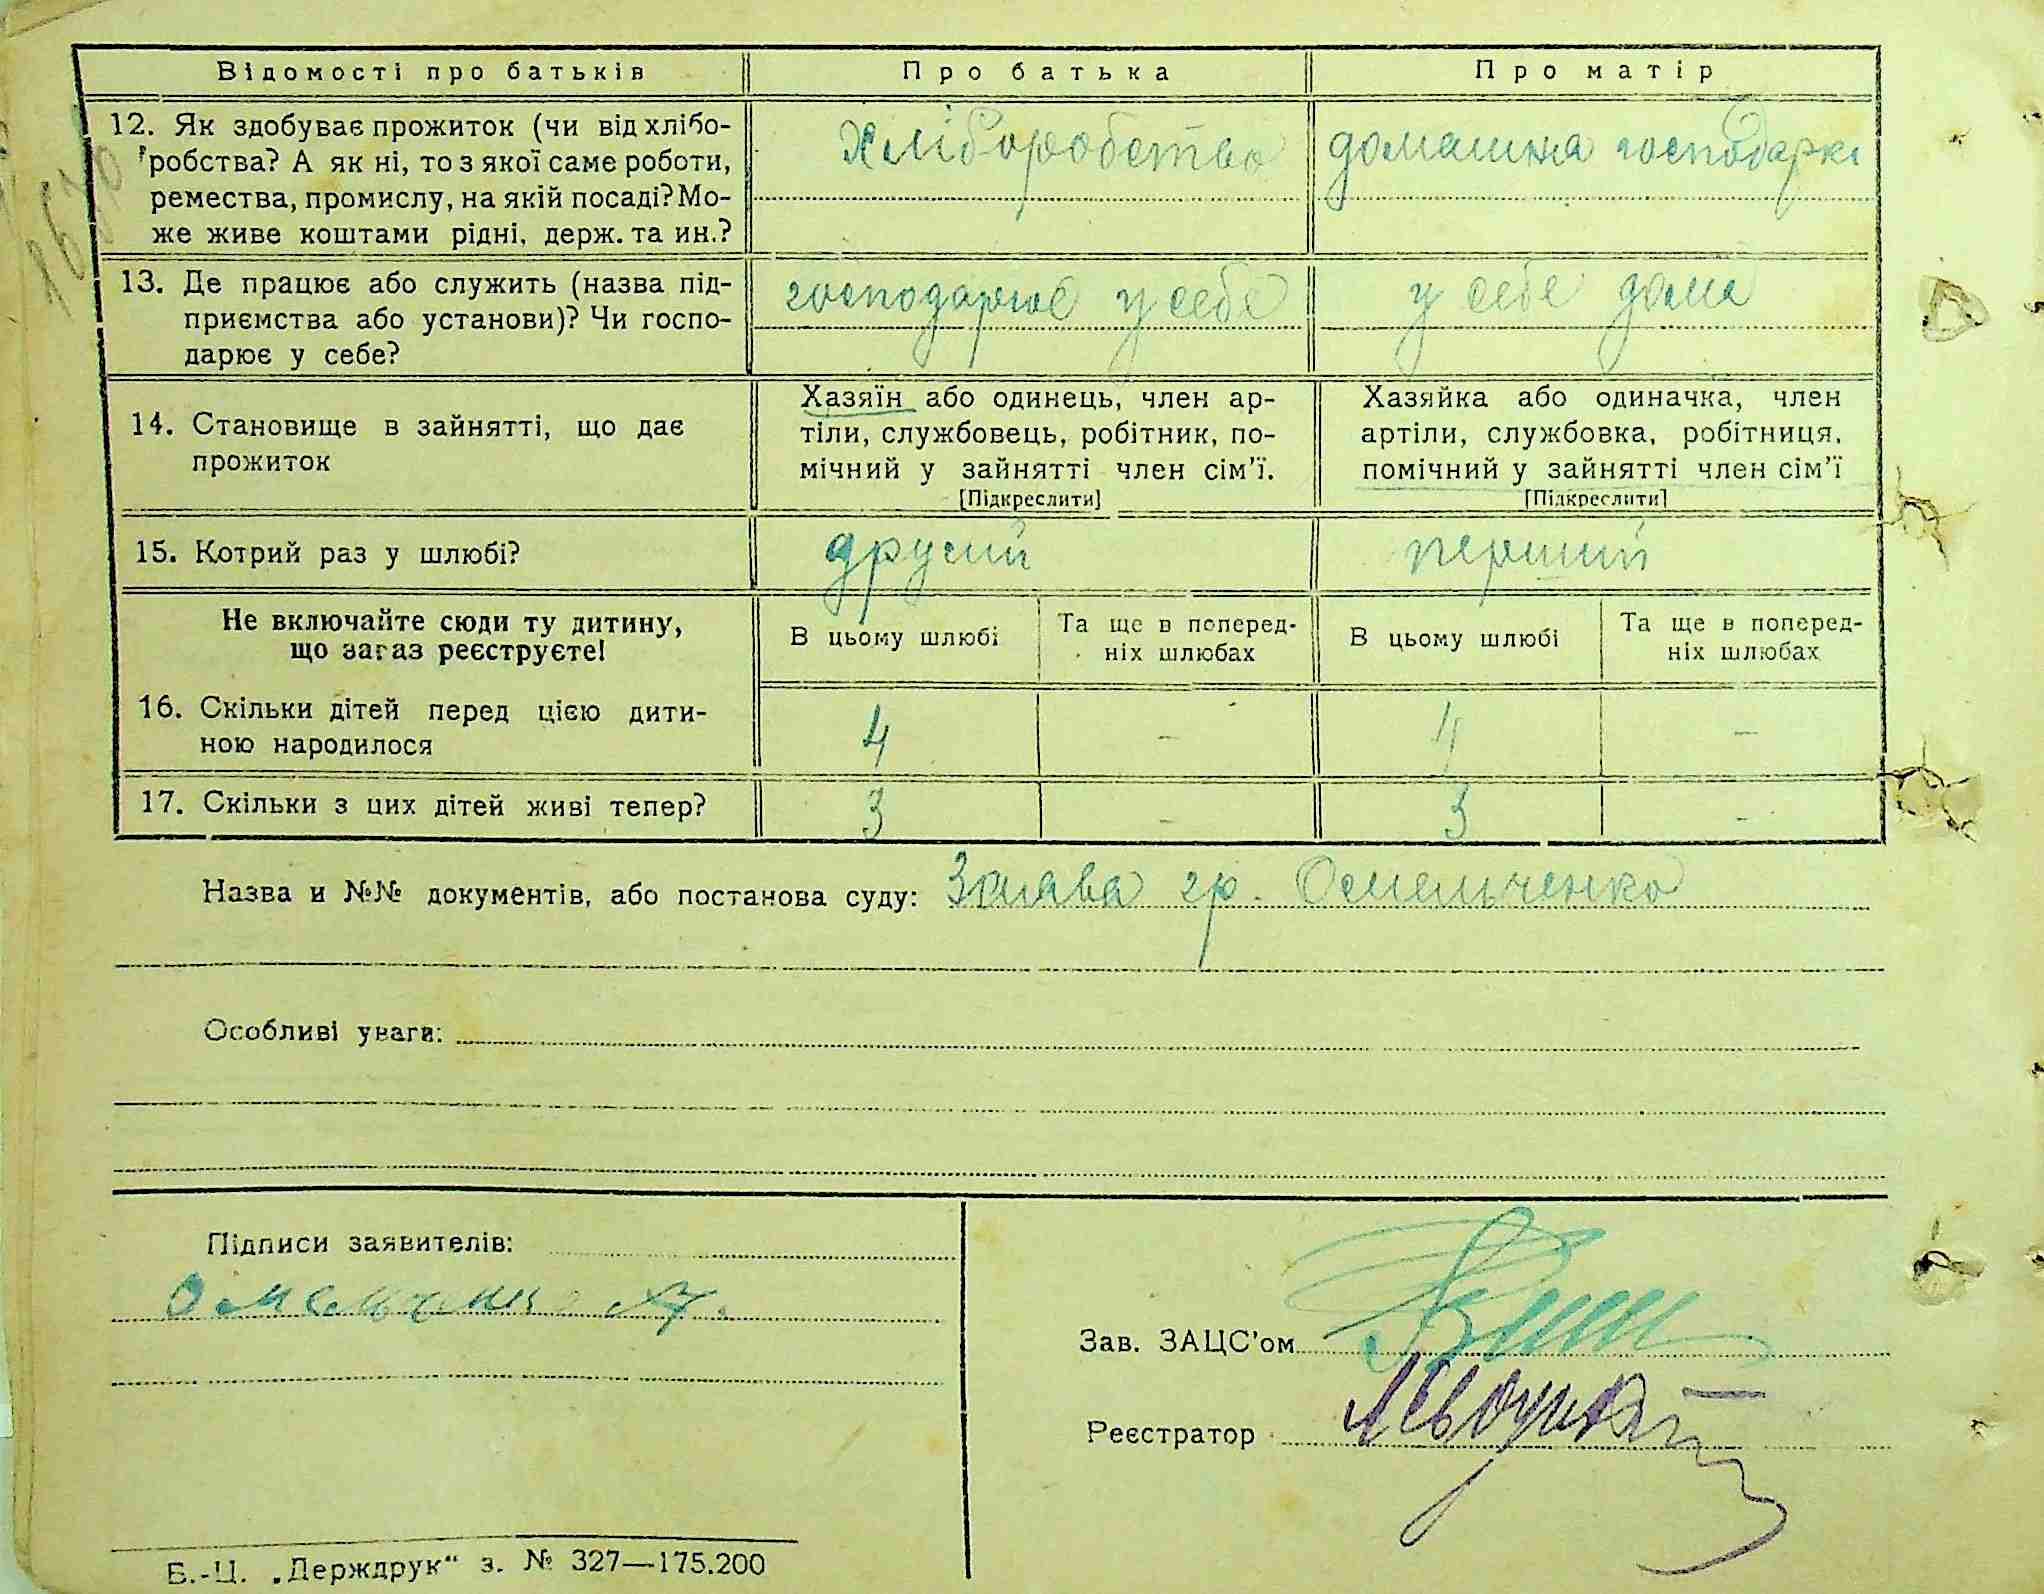 Відомості про батьків Про батька Про матір
12. Як здобуває прожиток (чи від хлібо-
робства? А як ні, то з якої саме роботи,
ремества, промислу, на якій посаді? Мо-
же живе коштами рідні, держ. та ин.?
Хліборобство
домашня господарка
13. Де працює або служить (назва під-
приємства або установи)? Чи госпо-
дарює у себе?
господарює у себе
у себе дома
14. Становище в зайнятті, що дає
прожиток
Хазяїн або одинець, член ар-
тіли, службовець, робітник, по-
мічний у зайнятті член сім'ї.
[Підкреслити]
Хазяйка або одиначка, член
артіли, службовка, робітниця,
помічний у зайнятті член сім'ї
[Підкреслити]
15. Котрий раз у шлюбі? другий перший
Не включайте сюди ту дитину,
що загаз реєструєте!
В цьому шлюбі
Та ще в поперед-
ніх шлюбах
В цьому шлюбі
Та ще в поперед-
ніх шлюбах
16. Скільки дітей перед цією дити-
ною народилося
4 - 4 -
17. Скільки з цих дітей живі тепер? 3 - 3 -
Назва и №№ документів, або постанова суду: Заява гр. Омельченко
Особливі уваги:
Підписи заявителів:
Зав. ЗАЦС'ом
Реєстратор
Б.-Ц. „Держдрук" з. № 327—175.200